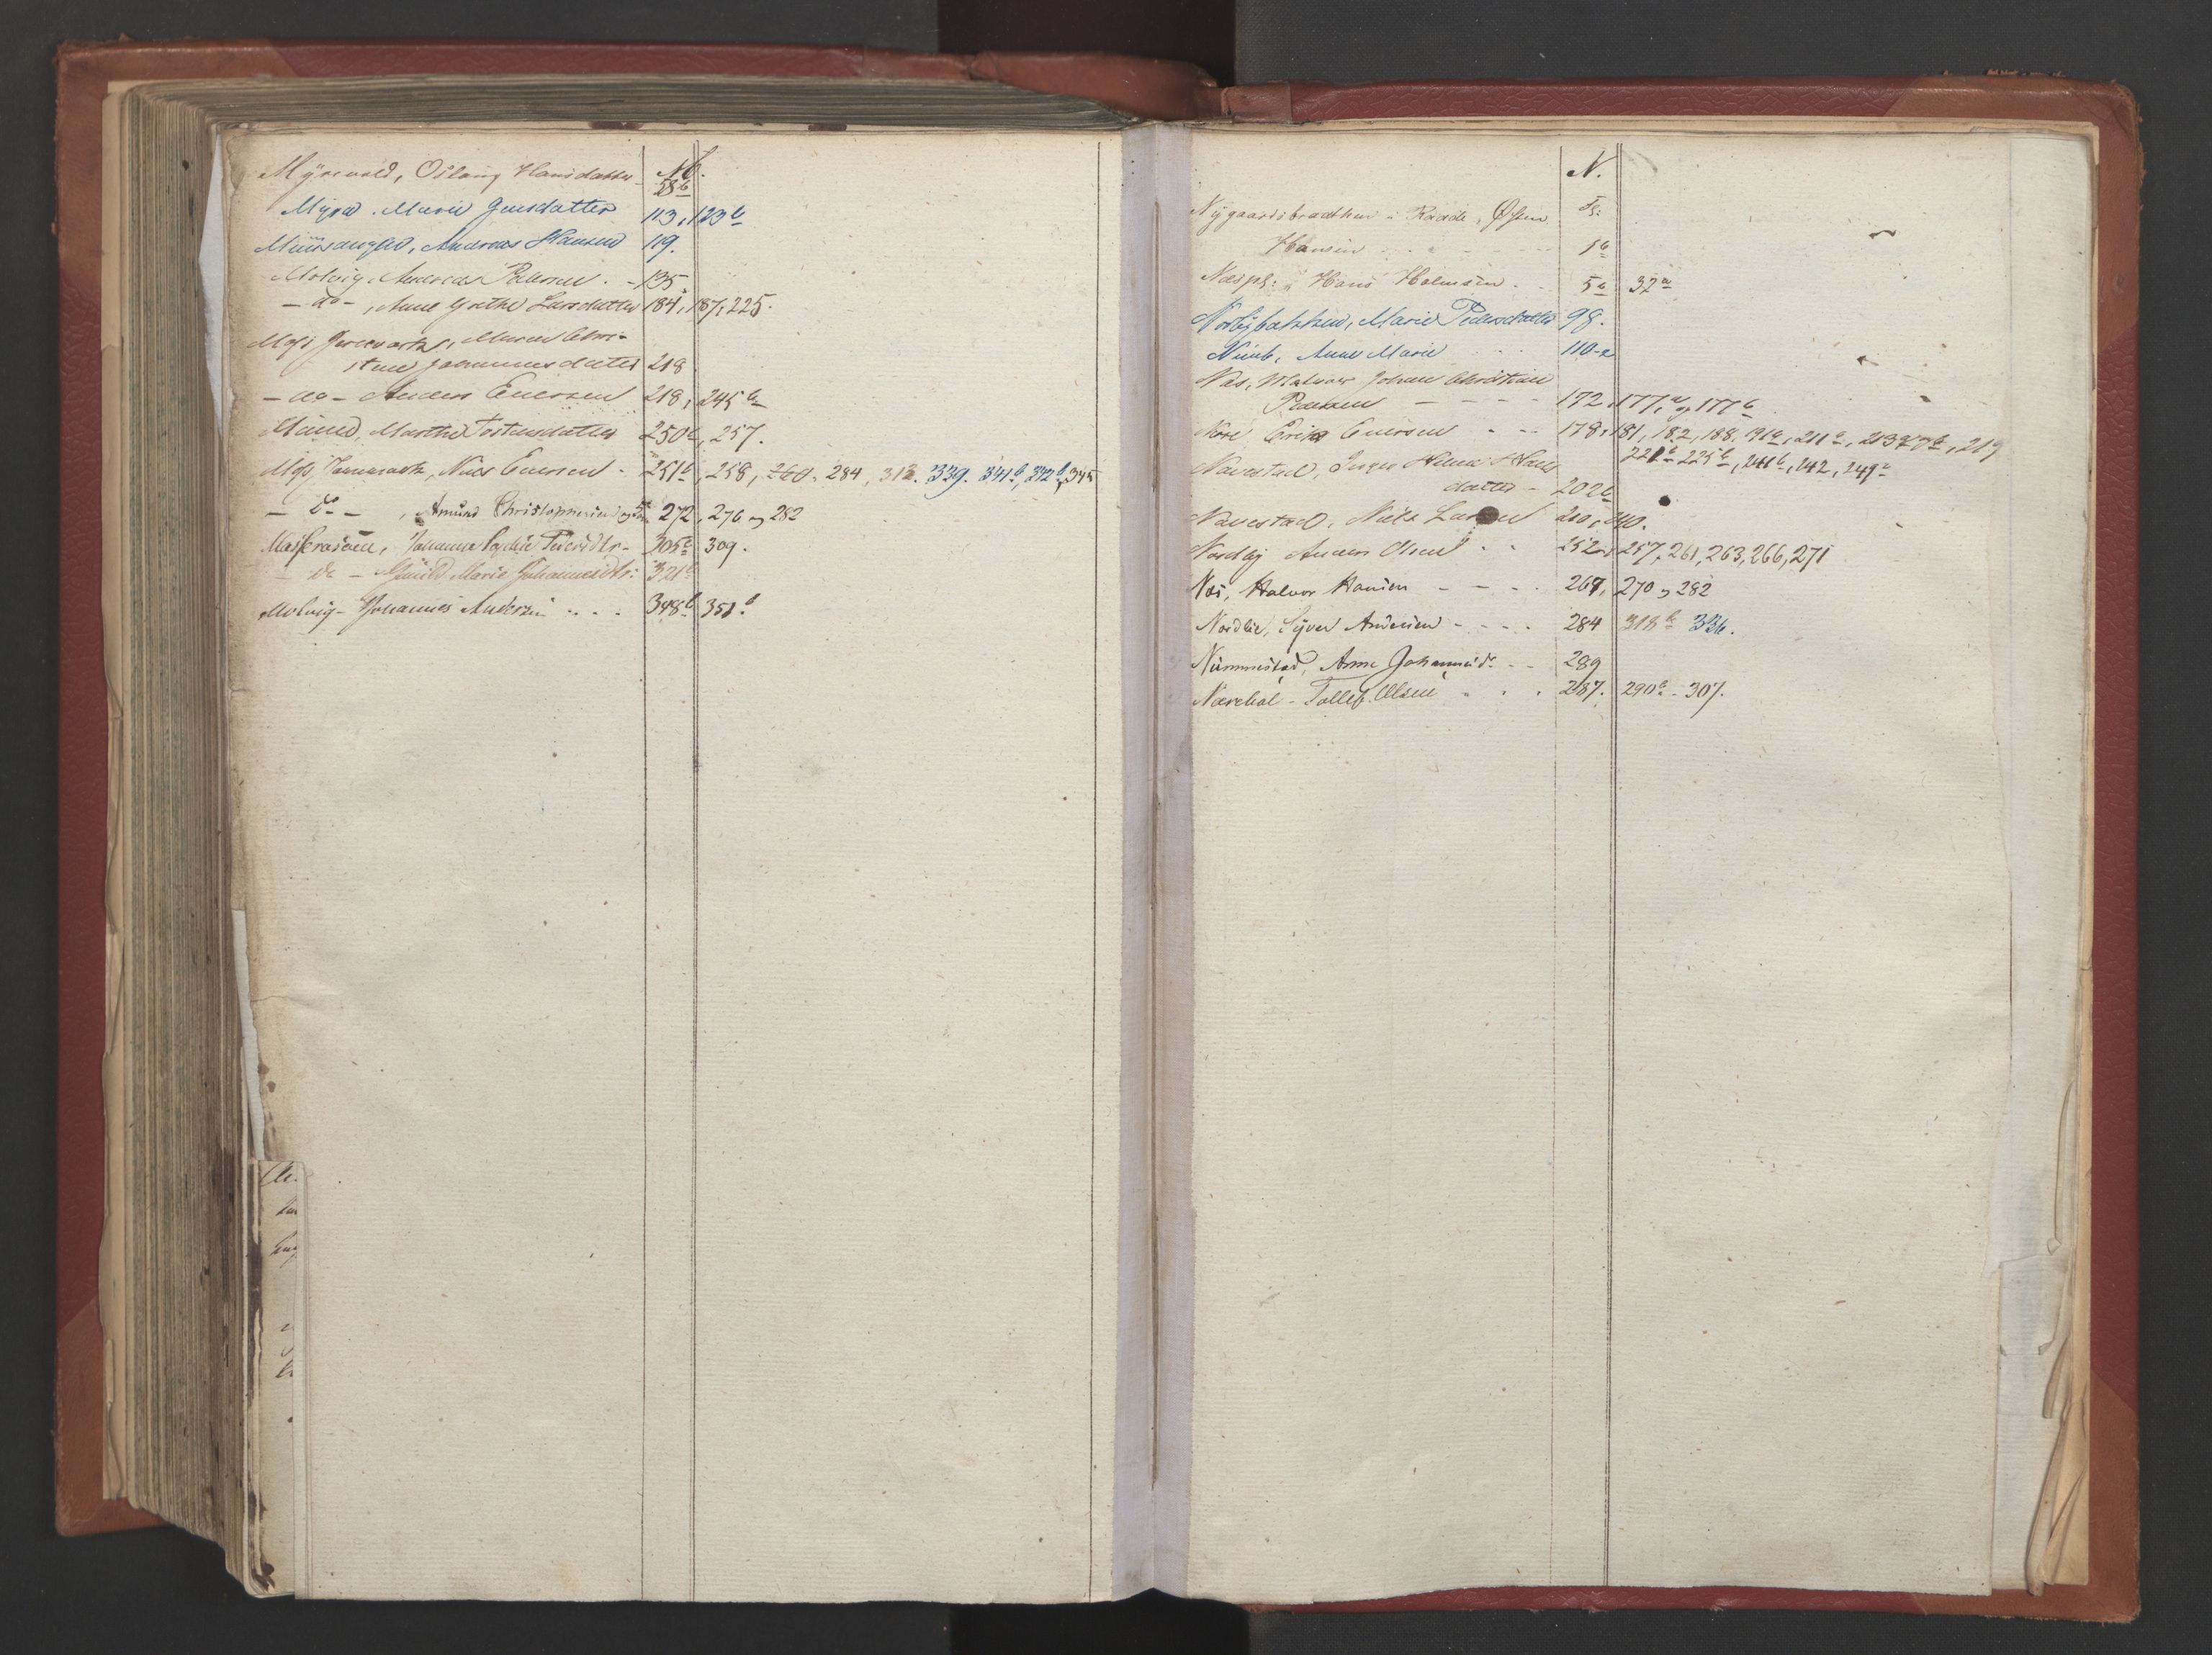 M.
Myrevold, Oslaug Hansdatter 58b
Myra. Marie Jensdatter 113, 123b
Andreas Hansen 119.
Molvig. Andreas Pettersen. - 135.
- do - , Anne Grethe Larsdatter 184, 187, 225.
Moss
stine Johannesdatter 218
- do - Anders Enersen 218, 245b
Marthe Tostensdatter 250b, 257.
Moss Niels Enersen - 251b, 258, 260, 284, 313. 339. 341b, 342b, 345
- do - , Amund Christophersen 272, 276 og 282
Johanne Sophie 305b 309.
- do - Marie Johannesdtr: 321b
Molvig - Johannes Andersen .... 348b 351b
N.
Nygaardsbraathen i Raade, Hansen
Fg:
1b
Næspl: Hans Holmsen . 5b 32a
Norbybakken, Marie Pedersdatter 98.
Anne Marie 110-a
Næs, Johan Christian
Pedersen - - - - 172, 177a og 177b
Nore Enersen 178, 181, 182, 188, 191a, 211a, 213a og b, 219
221b 225b, 241b, 242, 249a
Navestad, Inger Helene Hans
datter - 202b
Navestad, Niels Larsen 210, 240.
Nordby Anders Olsen 252 257, 261, 263, 266, 271
Næs, Halvor Hansen - - - 267, 270 og 282
Nordlie, Syver Andersen - - - . 284 313b 336.
Nummestad, Anne Johannesd. - - 289
Tollef Olsen 287. 290b. 307.